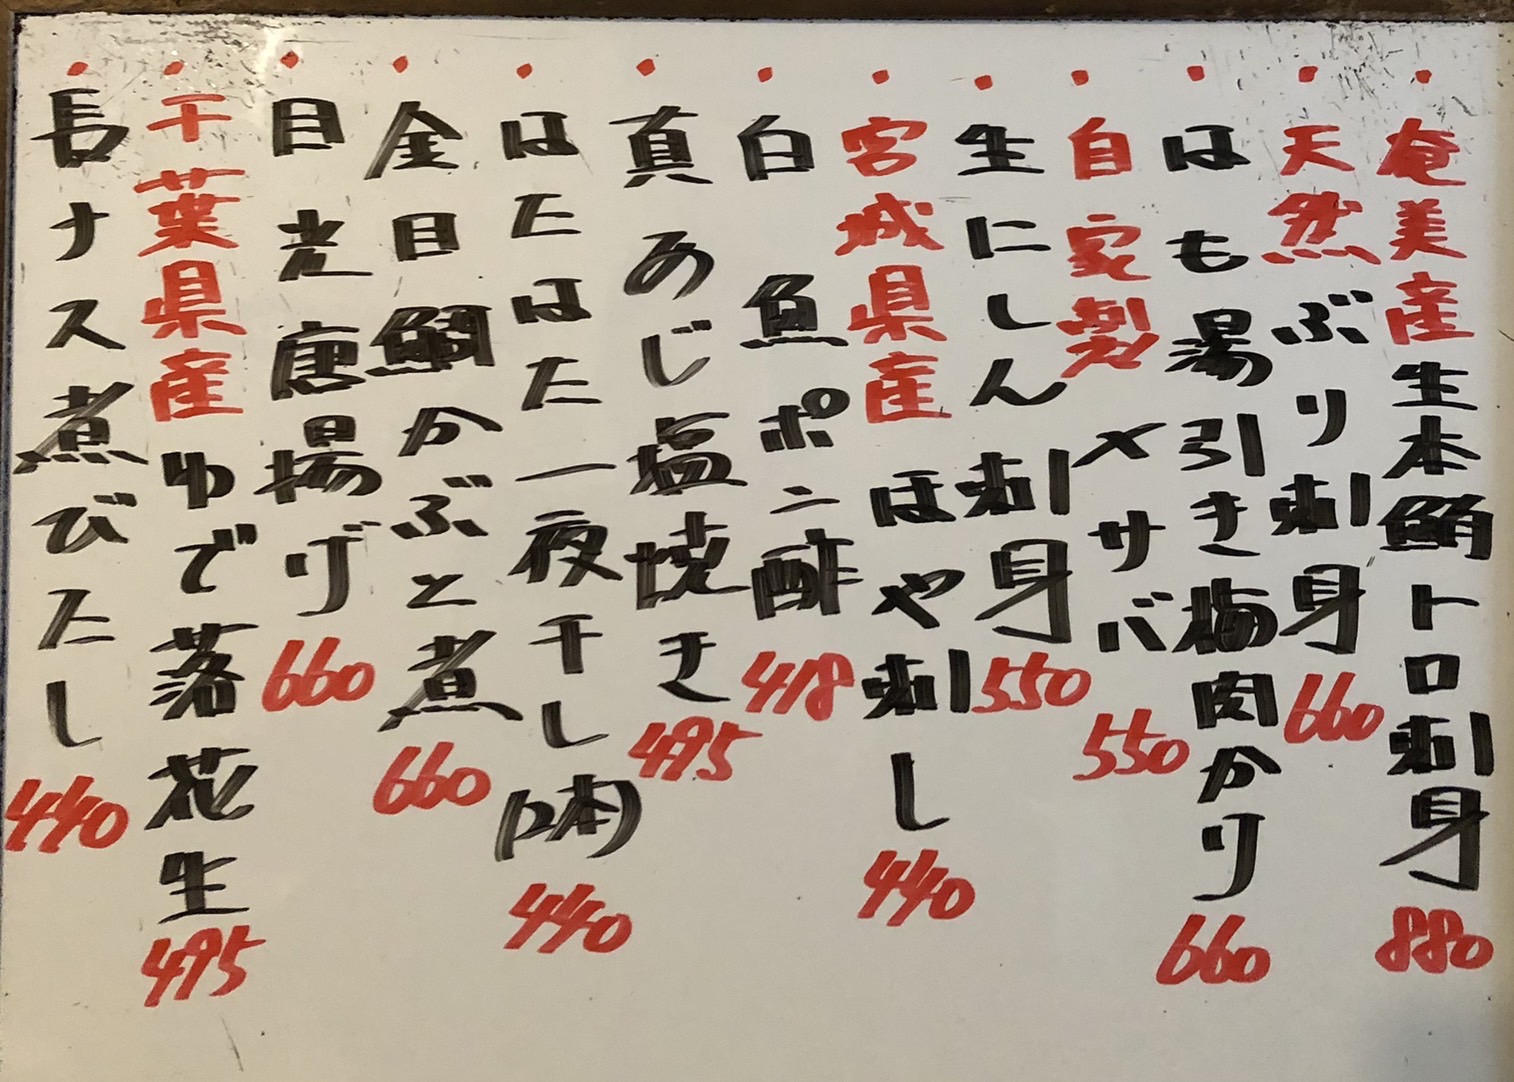 ・奄美産生本鮪トロ刺身 880
・天然ぶり刺身 660
・はも湯引き梅肉かり 660
・自家製〆サバ 550
・生にしん刺身 550
・宮城県産ほや刺し 440
・白魚ポン酢 418
・真あじ塩焼き 495
・はたはた一夜干し(2本) 440
・金目鯛かぶと煮 660
・目光唐揚げ 660
・千葉県産ゆで落花生 495
・長ナス煮びたし 440